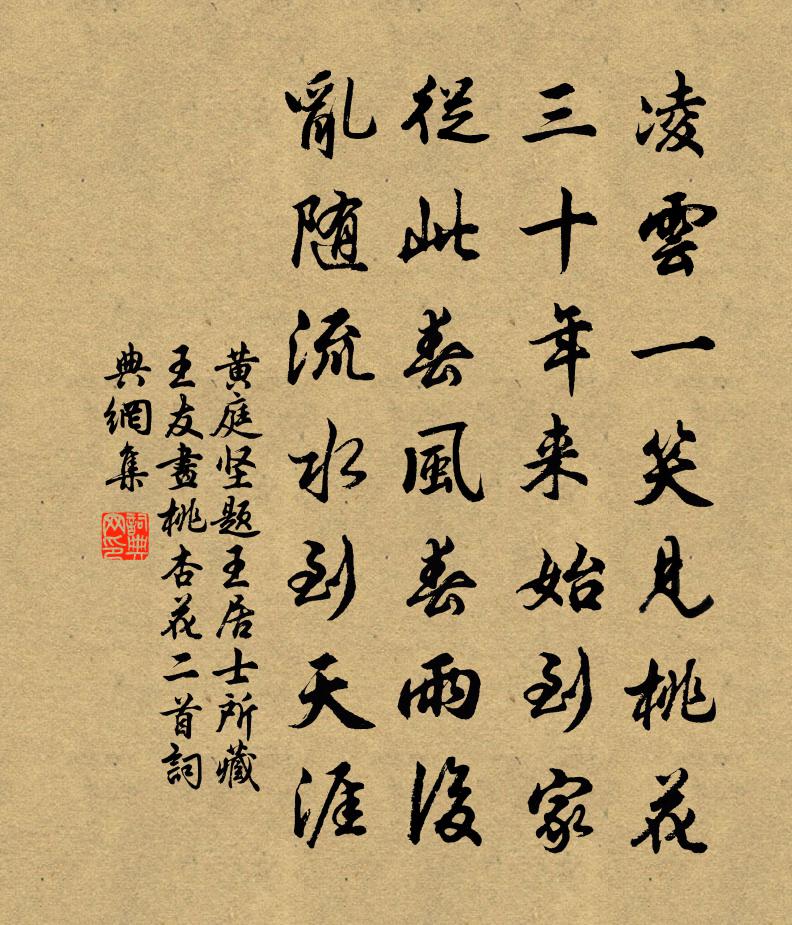 凌雲一笑見桃花
三十年来始到家
從此春風春雨後
亂随流水到天涯
黄庭坚題王居士所藏
王友畫桃杏花二首詞
典網集
詞典
网印